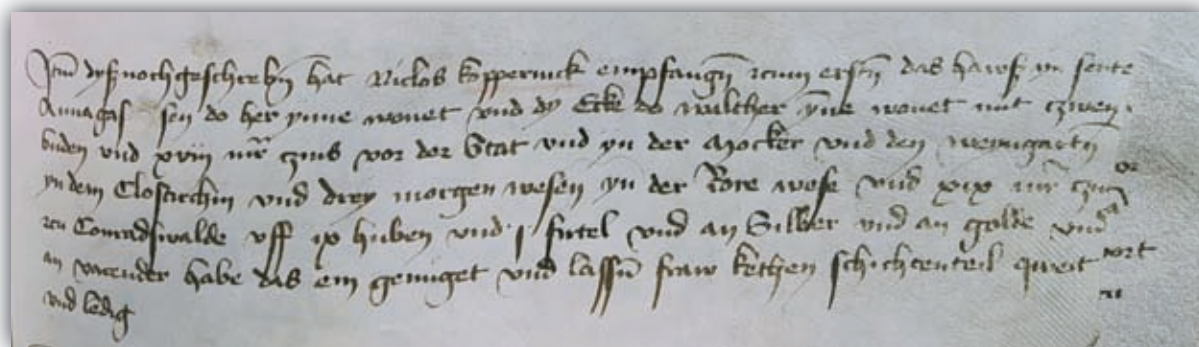 Item dyß nochgeschrebn hat Niclos koppernick empfangn czum erstn das hawß yn sente
Annagaß sen do her ynne wonet vnd dy Ecke do walther yne wonet mit czwen
buden vnd xviij mr czins vor der Stat vnd yn der Mocker vnd den weingartn
yn dem Closterchin vnd drey morgen wesen yn der Rore wese vnd xix mr czins
czu Conradswalde vff ix huben vnd j firtel vnd an Silber vnd an golde vnd
an varender habe das em genuget vnd lassn fraw kethen schichtenteil qweit
vnd ledig